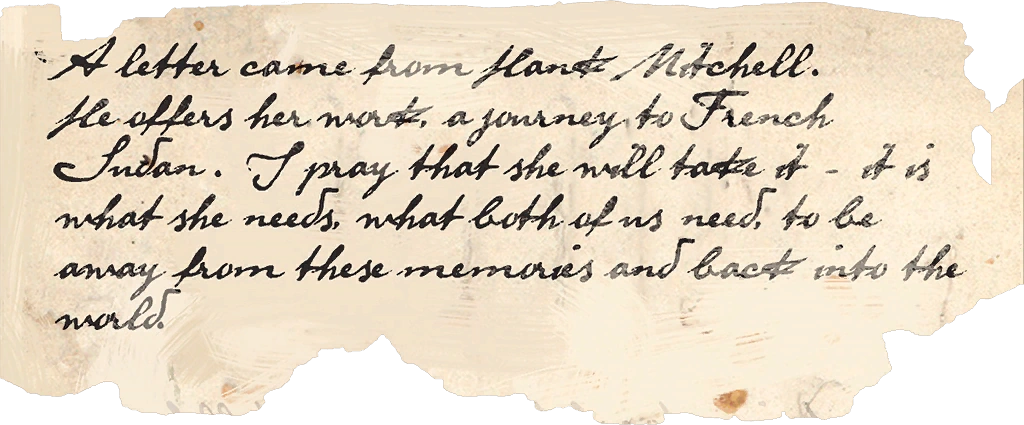 A letter came from Hank Mitchell.
He offers her work, a journey to French
Sudan. I pray that she will take it - it is
what she needs, what both of us need, to be
away from these memories and back into the
world.